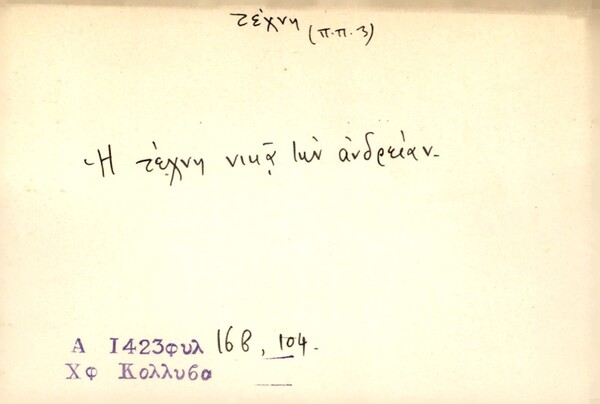 τέχνη (π.π. 3)
Ἡ τέχνη νικᾷ τὴν ἀνδρείαν.
Α 1423φυλ 168, 104.
Χφ Κολλυβα